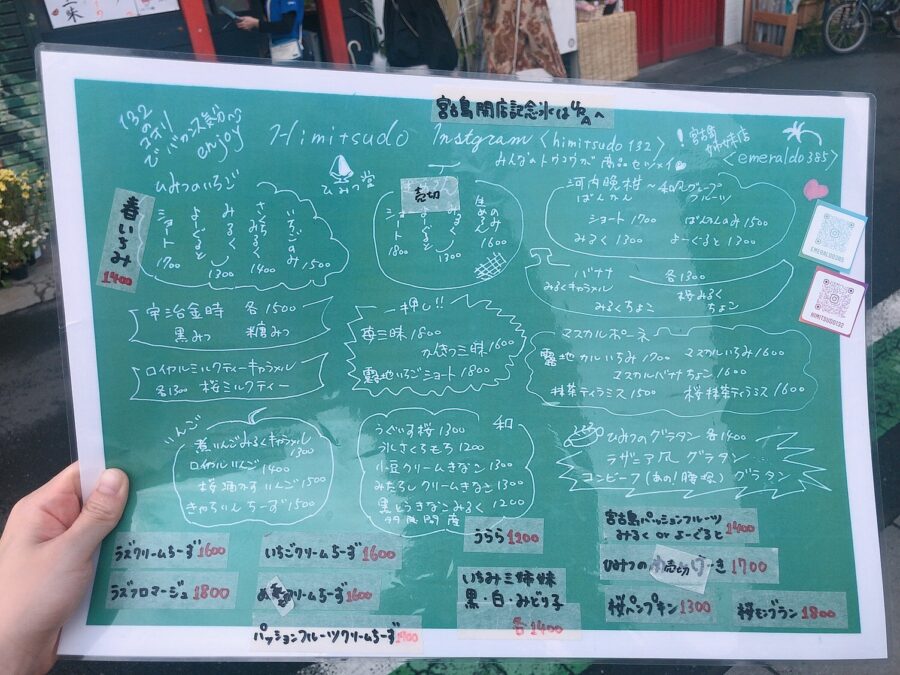 宮古島開店記念氷は4/8へ
132
のオリ
でバカンス気分
enjoy
Himitsudo
Instgram <himitsudo132>
みんなのトウコウが商品セツメイ
!宮古島
姉妹店
<emeraldo385>
ひみつ堂
春いちみ
1400
ひみつのいちご
ショート 1700
よーぐると
みるく 1300
さくらみるく 1400
いちごのみ 1500
売切
ショート 1800
よーぐると
みるく 1300
1600
河内晩柑〜和風グレープ
ばんかん フルーツ
ショート 1700 ばんかんのみ 1500
みるく 1300 よーぐると 1300
バナナ 各1300
みるくキャラメル 桜みるく
みるくちょこ ちょこ
宇治金時 各1500
黒みつ 糖みつ
一押し!!
苺三昧 1800
かんきつ三昧 1600
露地いちごショート 1800
マスカルポーネ
露地カルいちみ 1700 マスカルいちみ 1600
マスカルバナナちょこ 1600
抹茶ティラミス 1500 桜抹茶ティラミス 1600
ロイヤルミルクティーキャラメル
各1300 桜ミルクティー
りんご
煮りんごみるくキャラメル
1300
ロイヤルりんご 1400
桜酒かすりんご 1500
きゃらりんちーず 1500
和
うぐいす桜 1300
氷しさくらもち 1200
小豆クリームきなこ 1300
みたらしクリームきなこ 1300
黒とうきなこみるく 1200
多良間産
ひみつのグラタン 各1400
ラザニア風グラタン
コンビーフ(あの!腰塚)グラタン
うらら1200
宮古島パッションフルーツ
みるく or よーぐると 1400
ラズクリームちーず1600
いちごクリームちーず1600
ひみつの
売切
ーき 1700
ラズフロマージュ1800
クリームちーず1600
いちみ三姉妹
黒・白・みどり子
各1400
桜パンプキン1300
桜モンブラン1800
パッションフルーツクリームちーず1400
EMERALDO385
HIMITSUDO132